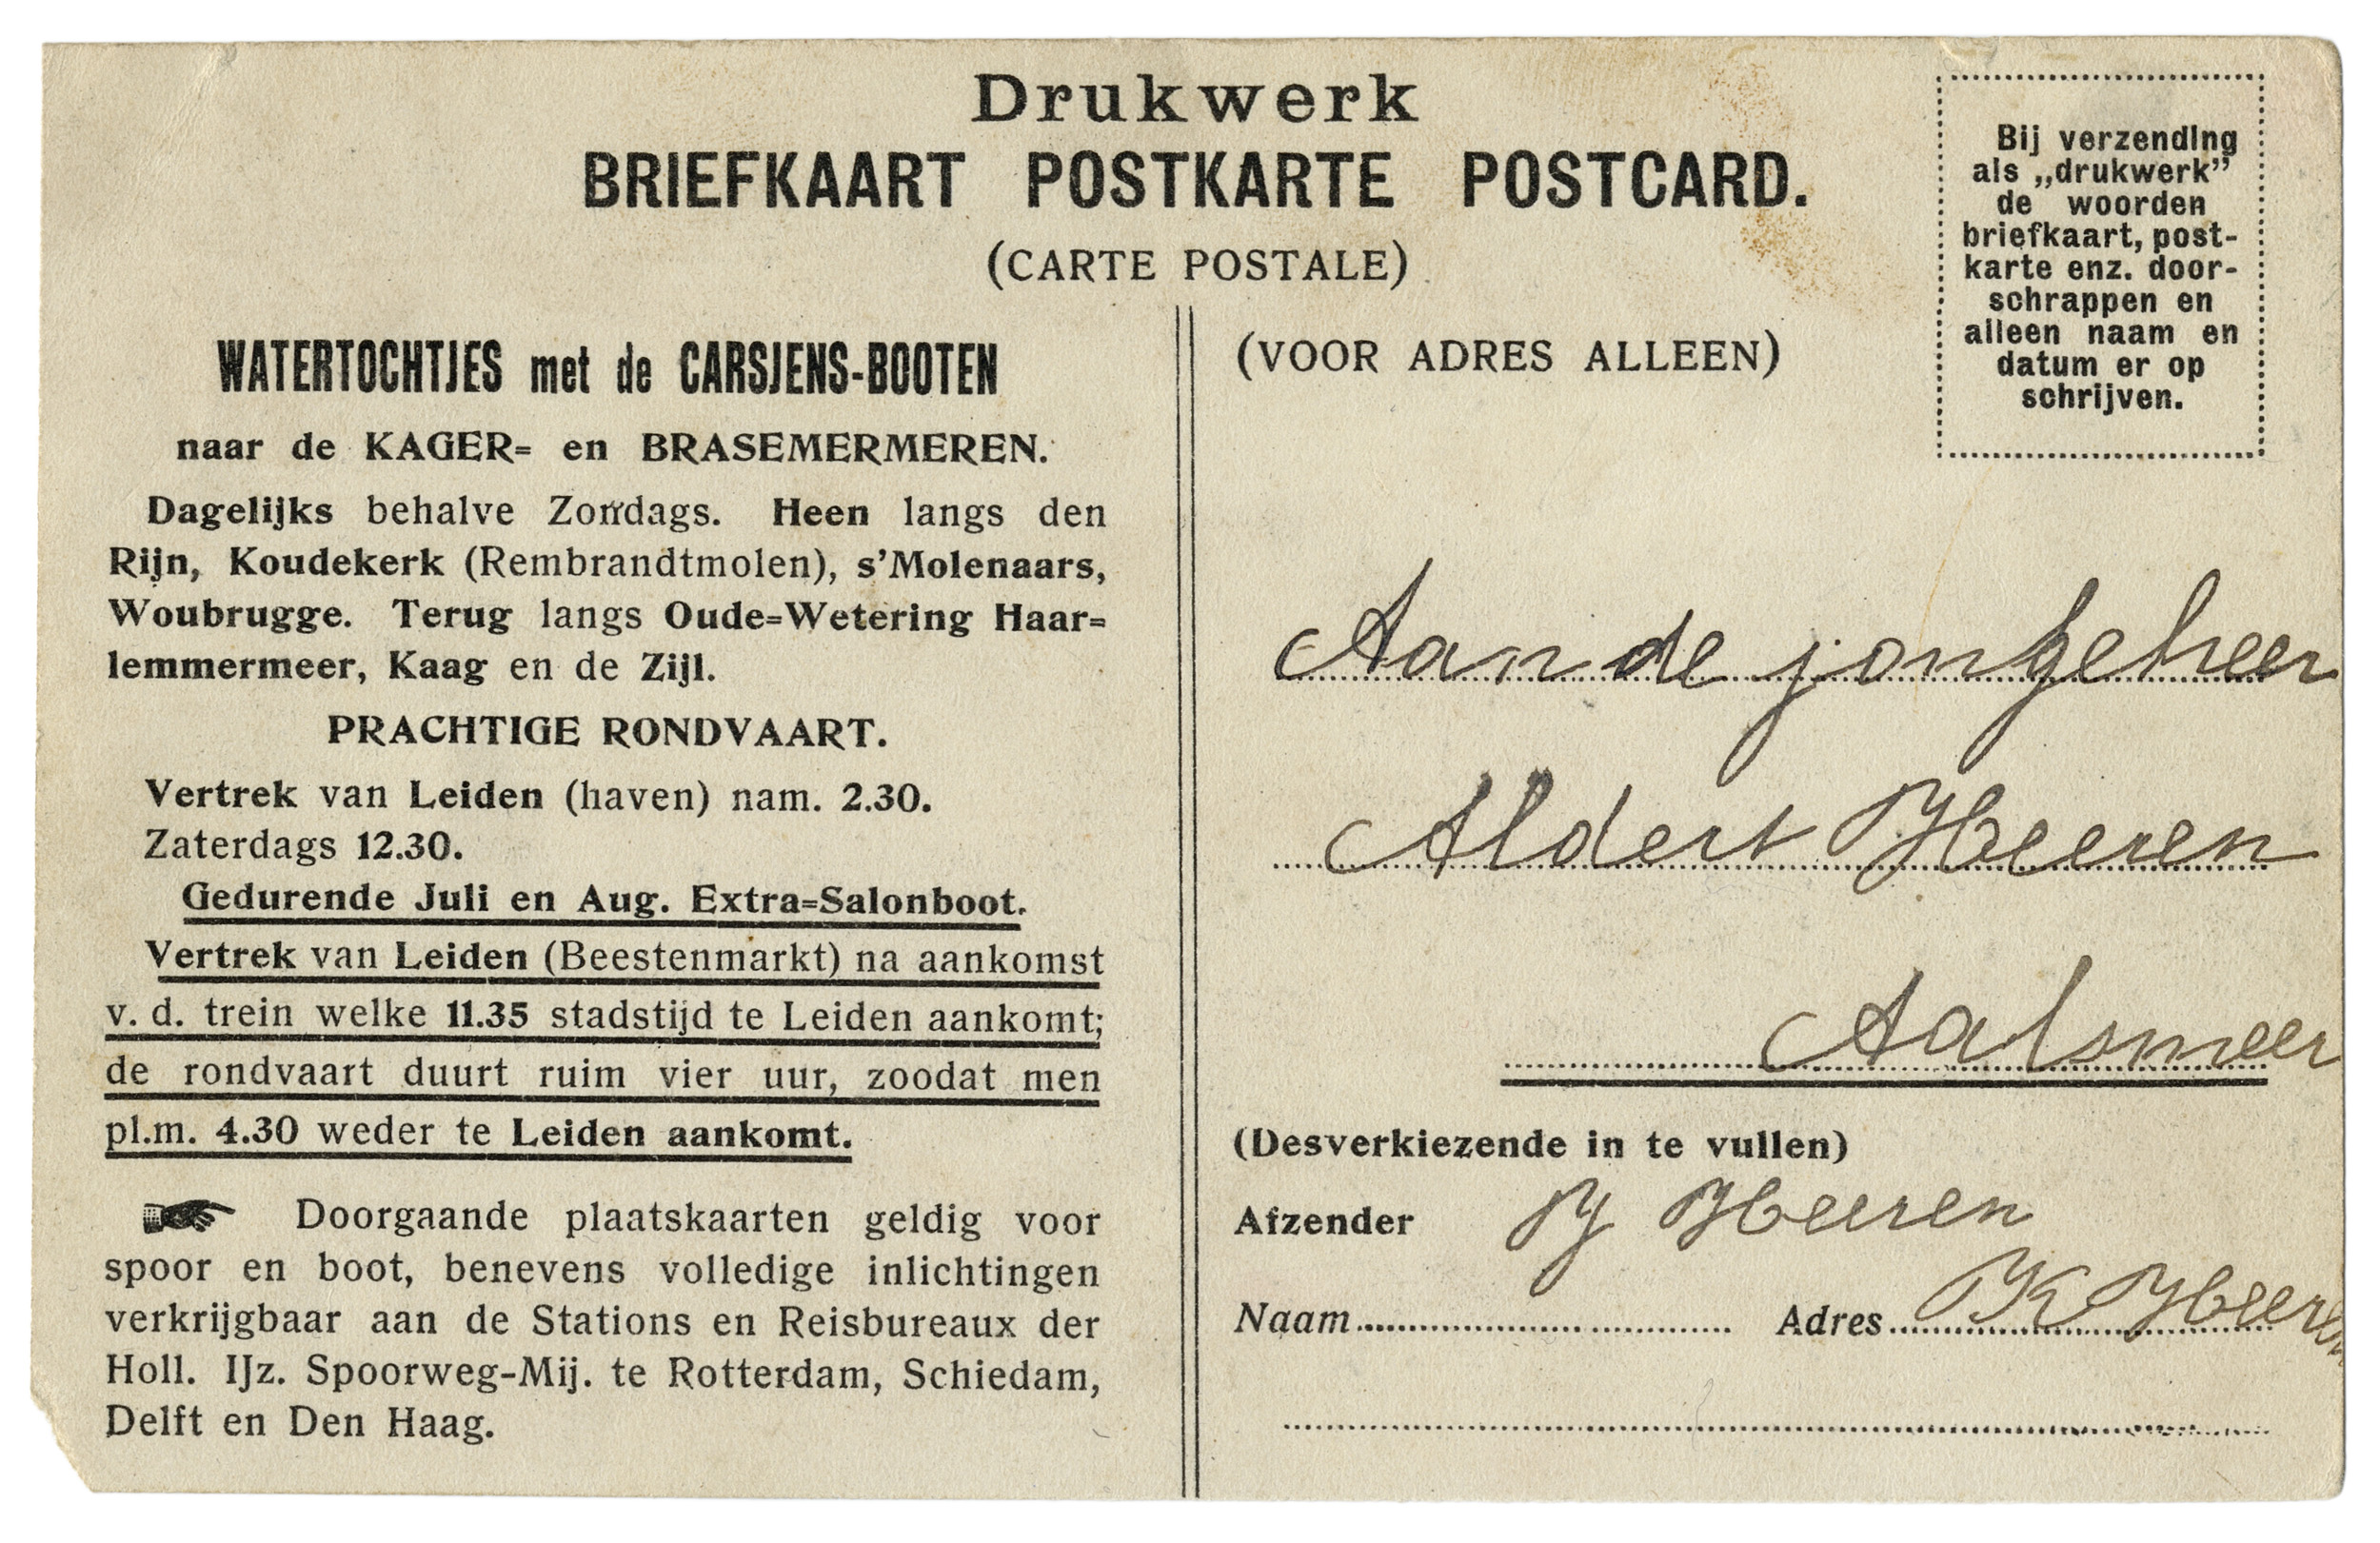 Drukwerk
BRIEFKAART POSTKARTE POSTCARD.
(CARTE POSTALE)
WATERTOCHTJES met de CARSJENS-BOOTEN
naar de KAGER= en BRASEMERMEREN.
Dagelijks behalve Zondags. Heen langs den
Rijn, Koudekerk (Rembrandtmolen), s'Molenaars,
Woubrugge. Terug langs Oude=Wetering Haar=
lemmermeer, Kaag en de Zijl.
PRACHTIGE RONDVAART.
Vertrek van Leiden (haven) nam. 2.30.
Zaterdags 12.30.
Gedurende Juli en Aug. Extra=Salonboot.
Vertrek van Leiden (Beestenmarkt) na aankomst
v. d. trein welke 11.35 stadstijd te Leiden aankomt;
de rondvaart duurt ruim vier uur, zoodat men
pl.m. 4.30 weder te Leiden aankomt.
☞ Doorgaande plaatskaarten geldig voor
spoor en boot, benevens volledige inlichtingen
verkrijgbaar aan de Stations en Reisbureaux der
Holl. IJz. Spoorweg-Mij. te Rotterdam, Schiedam,
Delft en Den Haag.
Bij verzending
als „drukwerk”
de woorden
briefkaart, post-
karte enz. door-
schrappen en
alleen naam en
datum er op
schrijven.
(VOOR ADRES ALLEEN)
Aan de jongeheer
Aldert Heeren
Aalsmeer
(Desverkiezende in te vullen)
Afzender Heeren
Naam Adres K Heeren